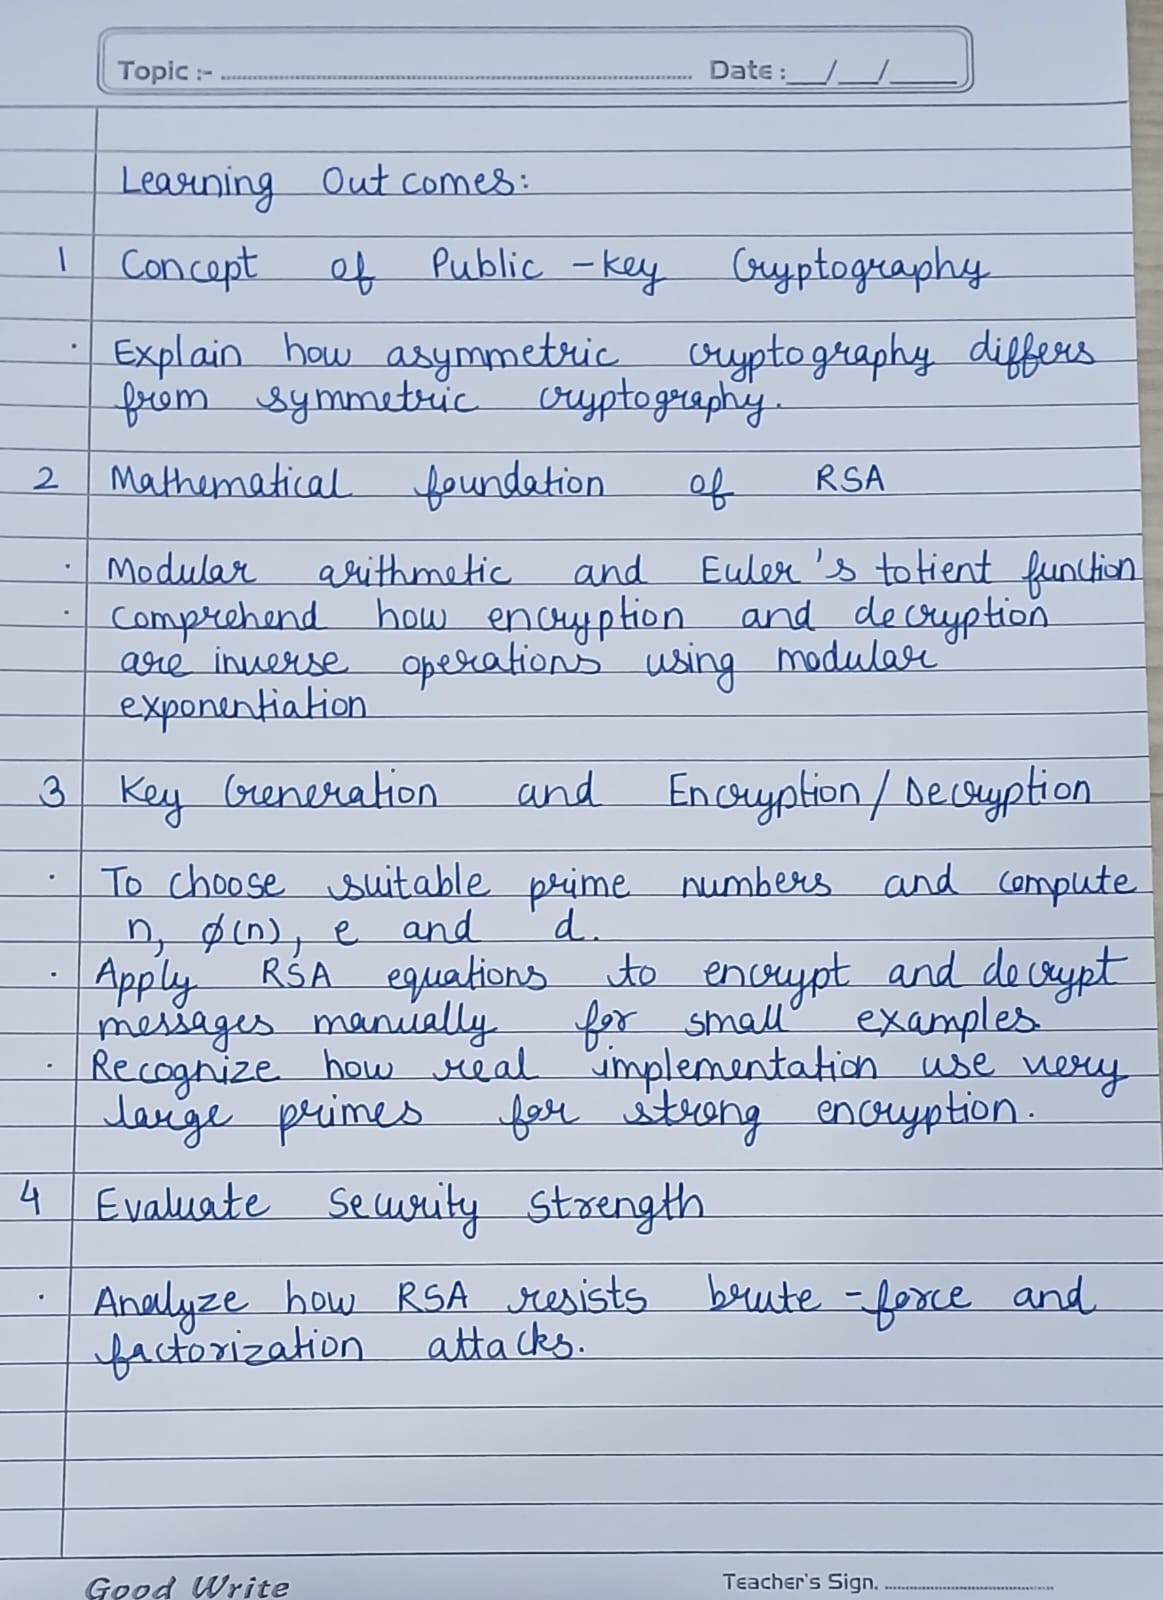 Topic :- Date : __/__/____
Learning Outcomes:
1 Concept of Public -key Cryptography
· Explain how asymmetric cryptography differs
from symmetric cryptography.
2 Mathematical foundation of RSA
· Modular arithmetic and Euler's totient function
· Comprehend how encryption and decryption
are inverse operations using modular
exponentiation
3 Key Generation and Encryption/Decryption
· To choose suitable prime numbers and compute
n, φ(n), e and d.
· Apply RSA equations to encrypt and decrypt
messages manually for small examples.
· Recognize how real implementation use very
large primes for strong encryption.
4 Evaluate Security Strength
· Analyze how RSA resists brute-force and
factorization attacks.
Good Write Teacher's Sign.